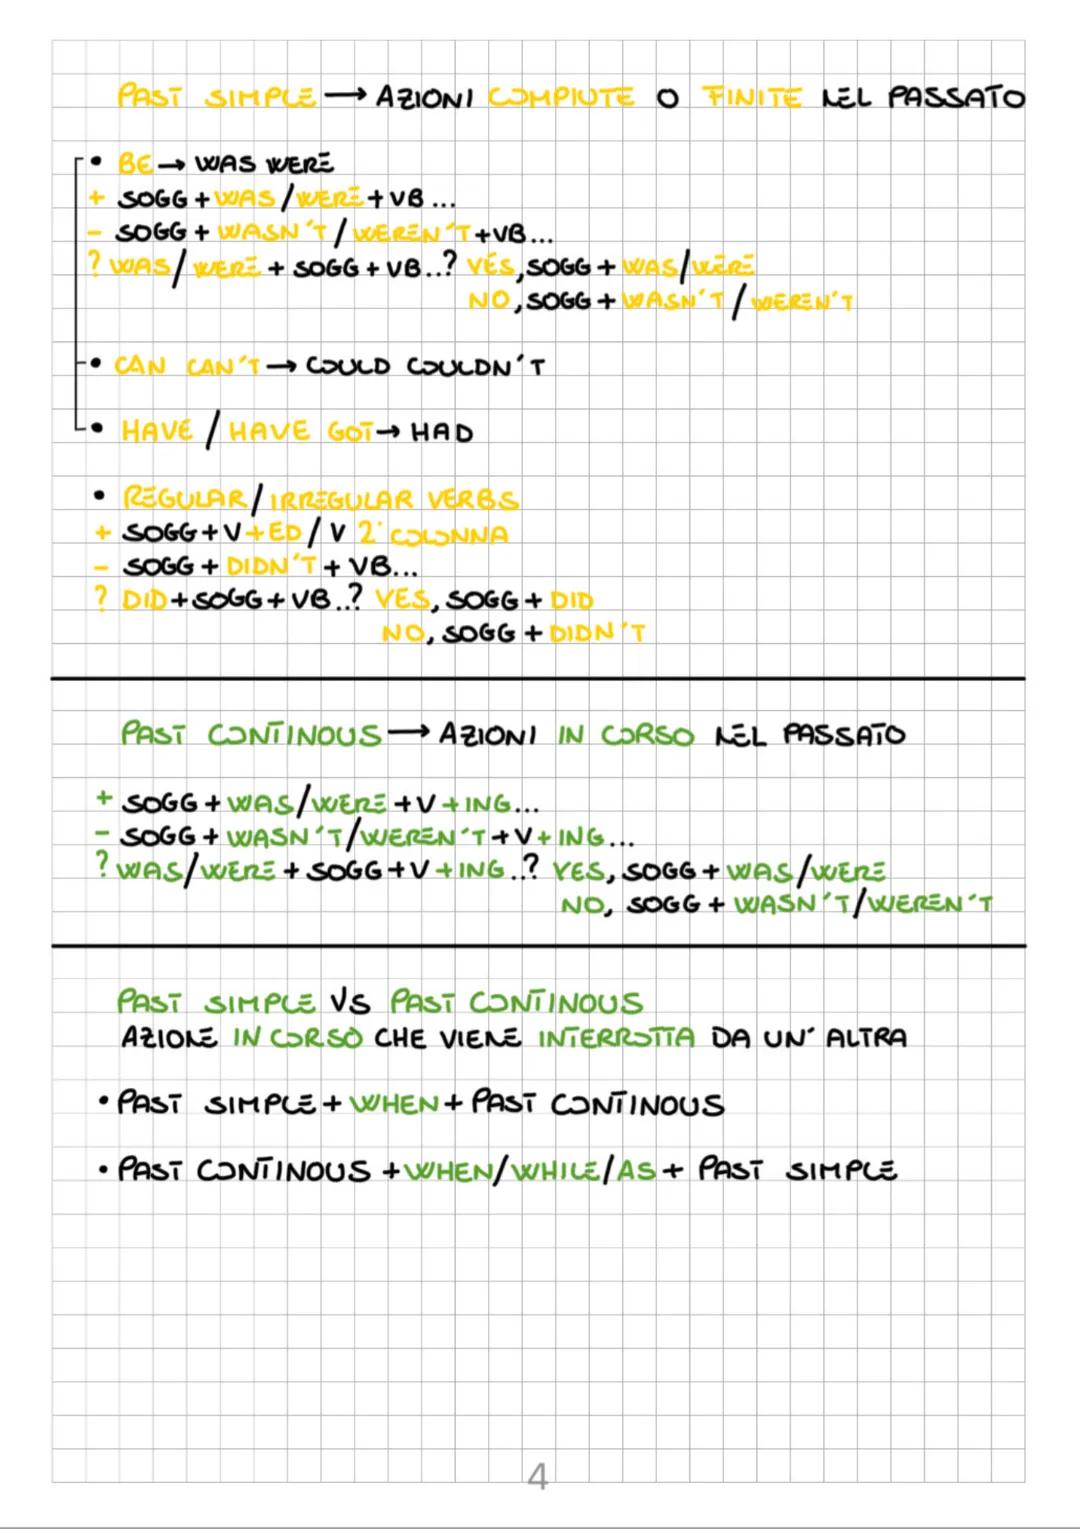 PAST SIMPLE → AZIONI COMPIUTE O FINITE NEL PASSATO
• BE → WAS WERE
+ SOGG + WAS / WERE + VB ...
- SOGG + WASN'T / WEREN'T + VB...
? WAS / WERE + SOGG + VB..? YES, SOGG + WAS/WERE
NO, SOGG + WASN'T / WEREN'T
• CAN CAN'T → COULD COULDN'T
• HAVE / HAVE GOT → HAD
• REGULAR / IRREGULAR VERBS
+ SOGG + V + ED / V 2° COLONNA
- SOGG + DIDN'T + VB...
? DID + SOGG + VB..? YES, SOGG + DID
NO, SOGG + DIDN'T
PAST CONTINOUS → AZIONI IN CORSO NEL PASSATO
+ SOGG + WAS/WERE + V + ING...
- SOGG + WASN'T/WEREN'T + V + ING...
? WAS/WERE + SOGG + V + ING..? YES, SOGG + WAS/WERE
NO, SOGG + WASN'T/WEREN'T
PAST SIMPLE VS PAST CONTINOUS
AZIONE IN CORSO CHE VIENE INTERROTTA DA UN' ALTRA
• PAST SIMPLE + WHEN + PAST CONTINOUS
• PAST CONTINOUS + WHEN/WHILE/AS + PAST SIMPLE
4